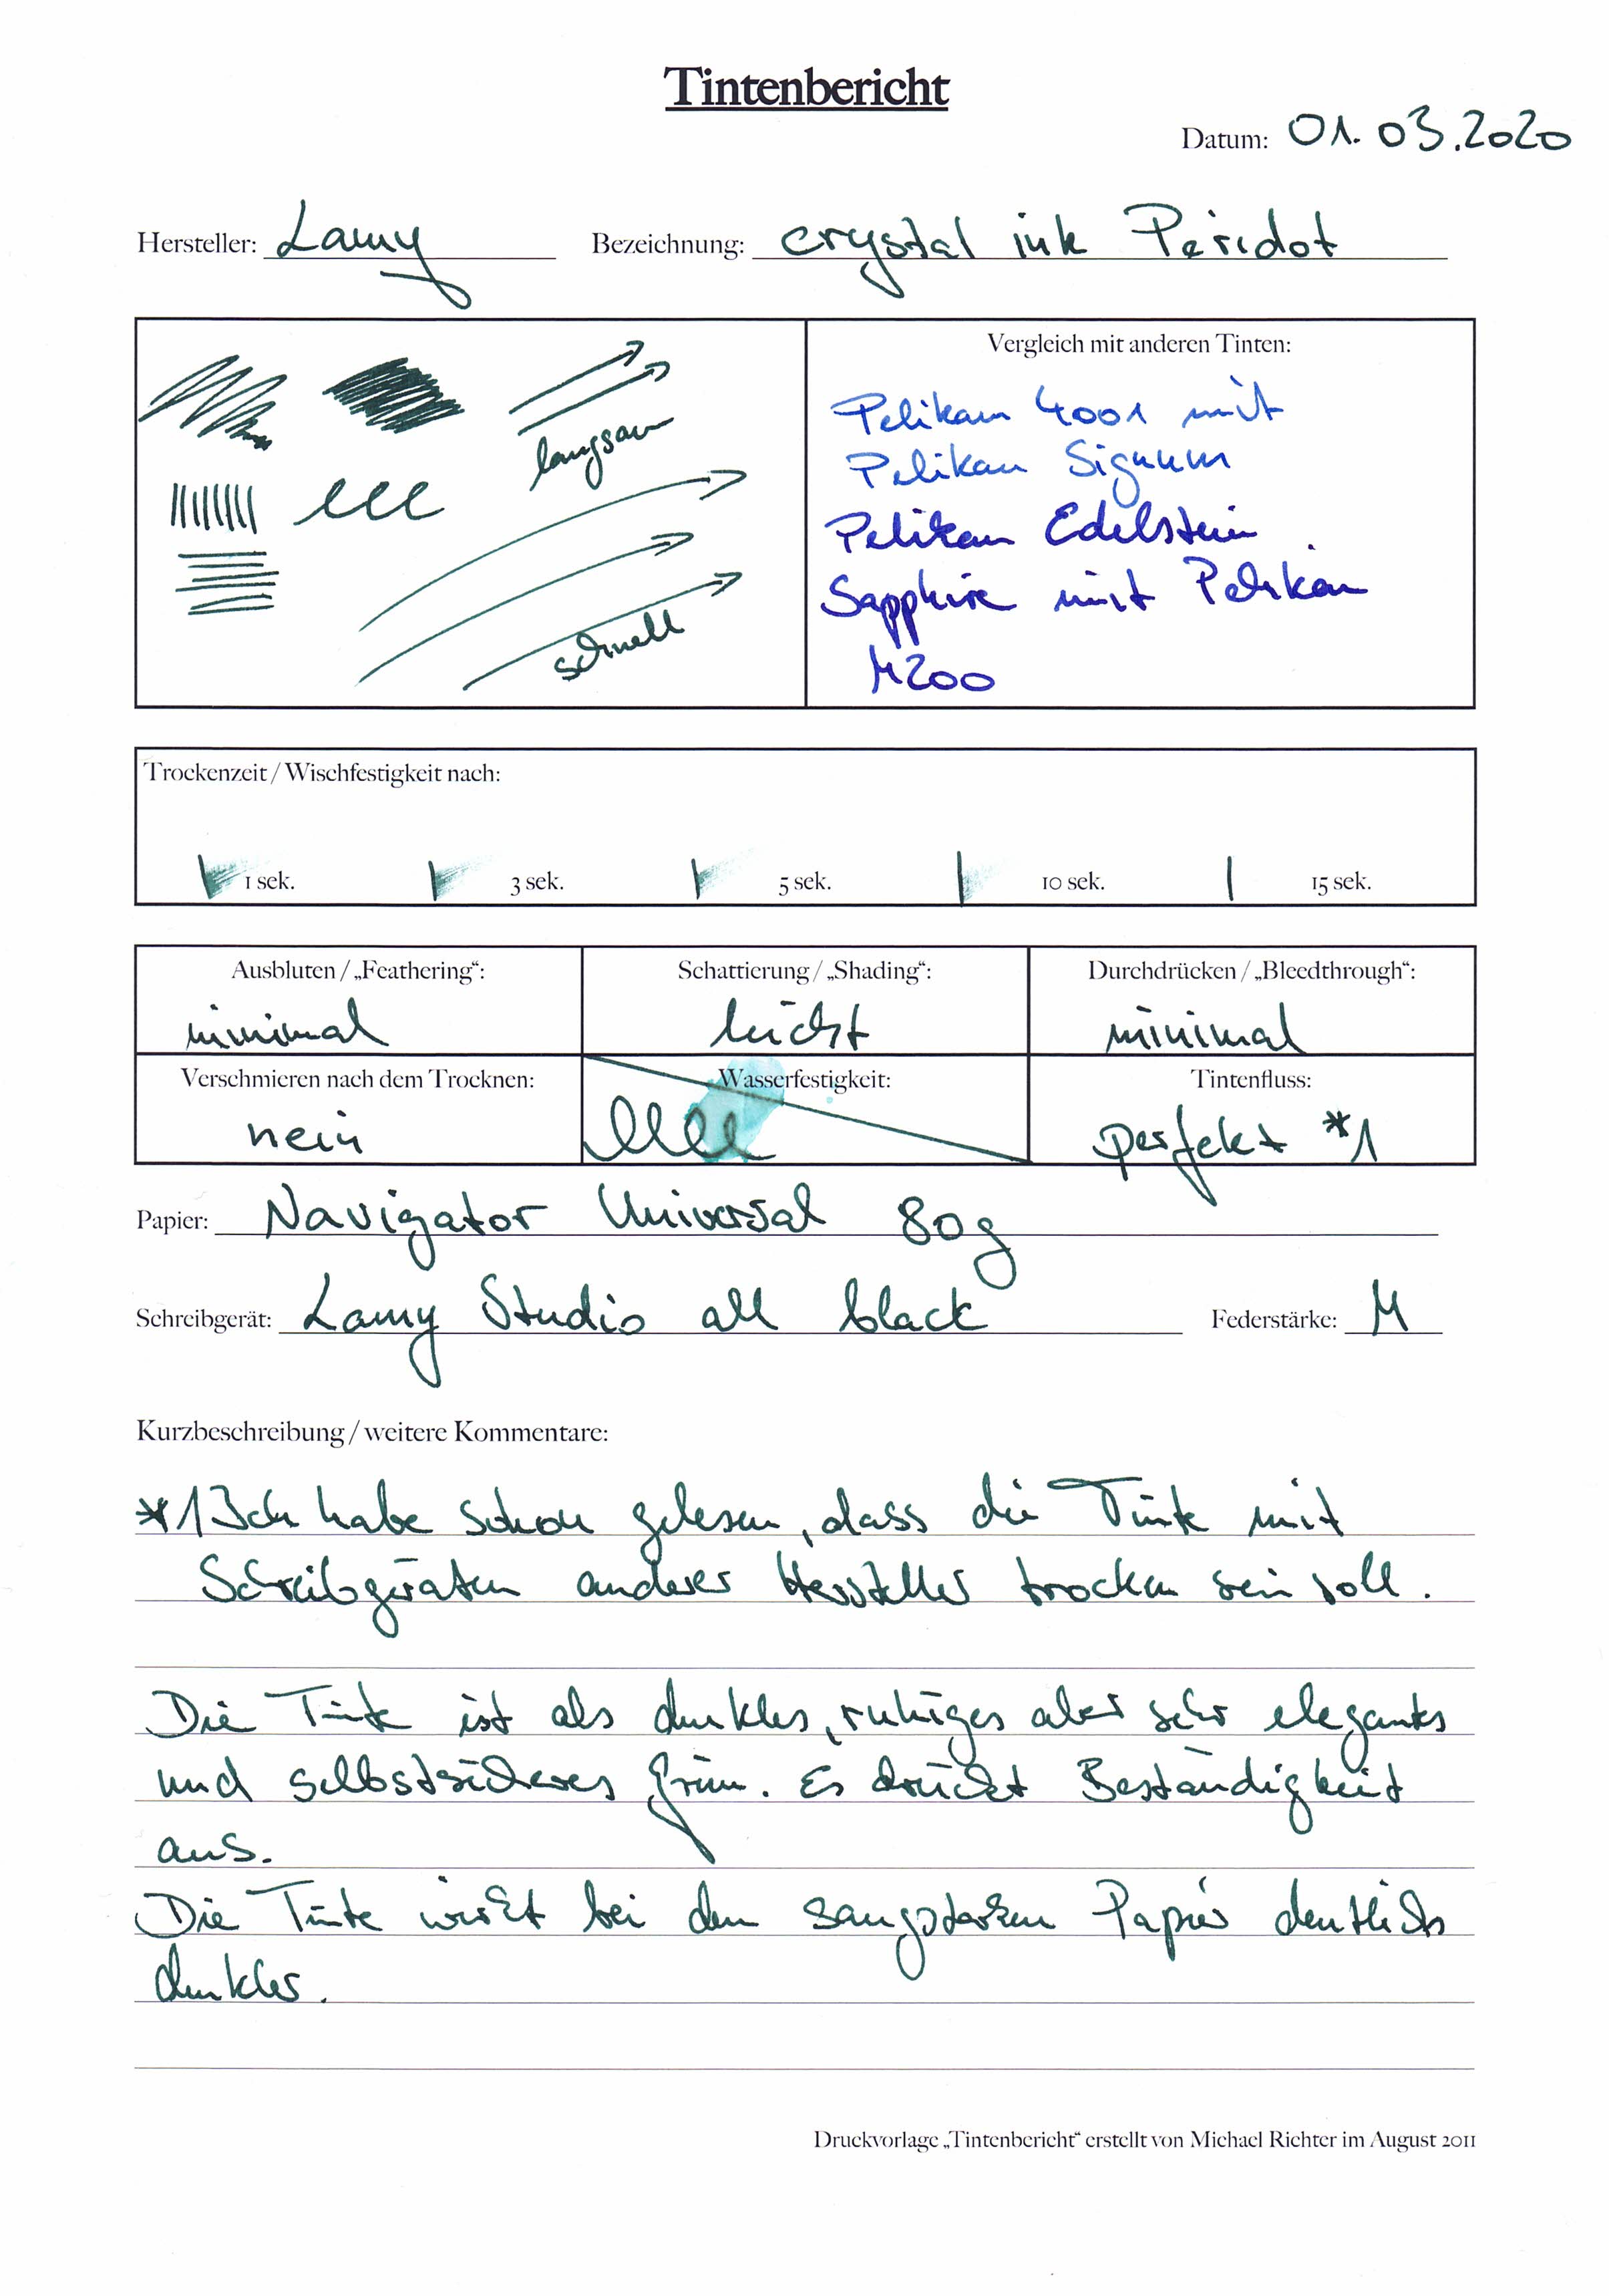 Tintenbericht
Datum: 01.03.2020
Hersteller: Lamy Bezeichnung: crystal ink Peridot
langsam
schnell
Vergleich mit anderen Tinten:
Pelikan 4001 mit
Pelikan Signum
Pelikan Edelstein
Sapphire mit Pelikan
M200
Trockenzeit / Wischfestigkeit nach:
1 sek. 3 sek. 5 sek. 10 sek. 15 sek.
Ausbluten / „Feathering“: Schattierung / „Shading“: Durchdrücken / „Bleedthrough“:
minimal leicht minimal
Verschmieren nach dem Trocknen: Wasserfestigkeit: Tintenfluss:
nein perfekt *1
Papier: Navigator Universal 80g
Schreibgerät: Lamy Studio all black Federstärke: M
Kurzbeschreibung / weitere Kommentare:
*1 Ich habe schon gelesen, dass die Tinte mit
Schreibgeräten anderer Hersteller trocken sein soll.
Die Tinte ist als dunkles, ruhiges aber sehr elegantes
und selbstsicheres grün. Es drückt Beständigkeit
aus.
Die Tinte wirkt bei dem saugstarken Papier deutlich
dunkler.
Druckvorlage „Tintenbericht“ erstellt von Michael Richter im August 2011